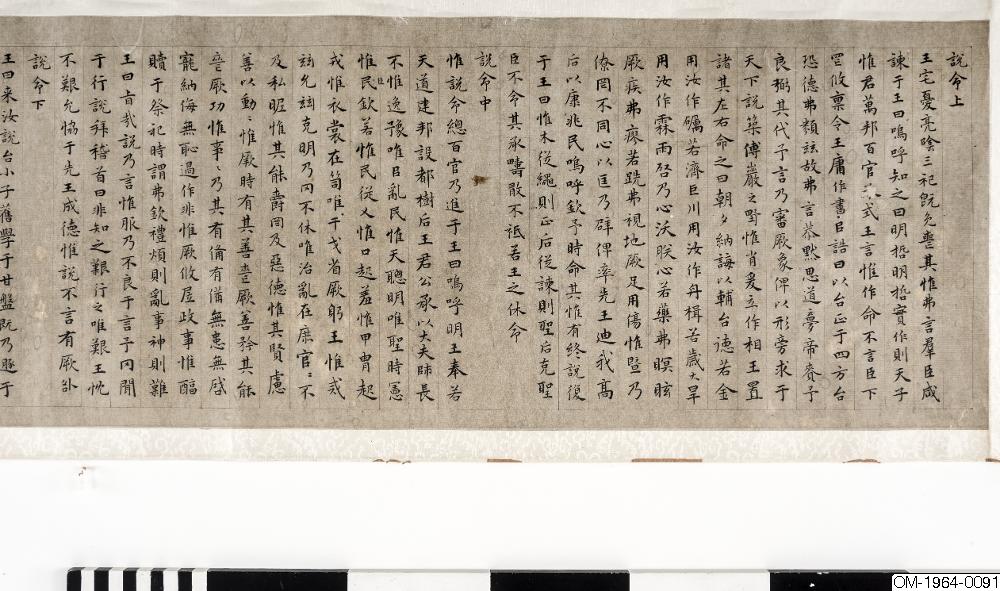 說命上
王宅憂亮陰三祀旣免喪其惟弗言羣臣咸
諫于王曰嗚呼知之曰明哲明哲實作則天子
惟君萬邦百官承式王言惟作命不言臣下
罔攸禀令王庸作書以誥曰以台正于四方台
恐德弗類玆故弗言恭默思道夢帝賚予
良弼其代予言乃審厥象俾以形旁求于
天下說築傅巖之野惟肖爰立作相王置
諸其左右命之曰朝夕納誨以輔台德若金
用汝作礪若濟巨川用汝作舟楫若歲大旱
用汝作霖雨啓乃心沃朕心若藥弗瞑眩
厥疾弗瘳若跣弗視地厥足用傷惟曁乃
僚罔不同心以匡乃辟俾率先王迪我高
后以康兆民嗚呼欽予時命其惟有終說復
于王曰惟木從繩則正后從諫則聖后克聖
臣不命其承疇敢不祗若王之休命
說命中
惟說命總百官乃進于王曰嗚呼明王奉若
天道建邦設都樹后王君公承以大夫師長
不惟逸豫唯以亂民惟天聰明唯聖時憲
惟民欽若惟民從乂惟口起羞惟甲冑起
戎惟衣裳在笥唯干戈省厥躬王惟戒
玆允玆克明乃罔不休唯治亂在庶官〻不
及私昵惟其能爵罔及惡德惟其賢慮
善以動〻惟厥時有其善喪厥善矜其能
喪厥功惟事〻乃其有備有備無患無啓
寵納侮無恥過作非惟厥攸居政事惟醇
黷于祭祀時謂弗欽禮煩則亂事神則難
王曰旨哉說乃言惟服乃不良于言予罔聞
于行說拜稽首曰非知之艱行之唯艱王忱
不艱允協于先王成德惟說不言有厥咎
說命下
王曰来汝說台小子舊學于甘盤旣乃遯于
OM-1964-0091